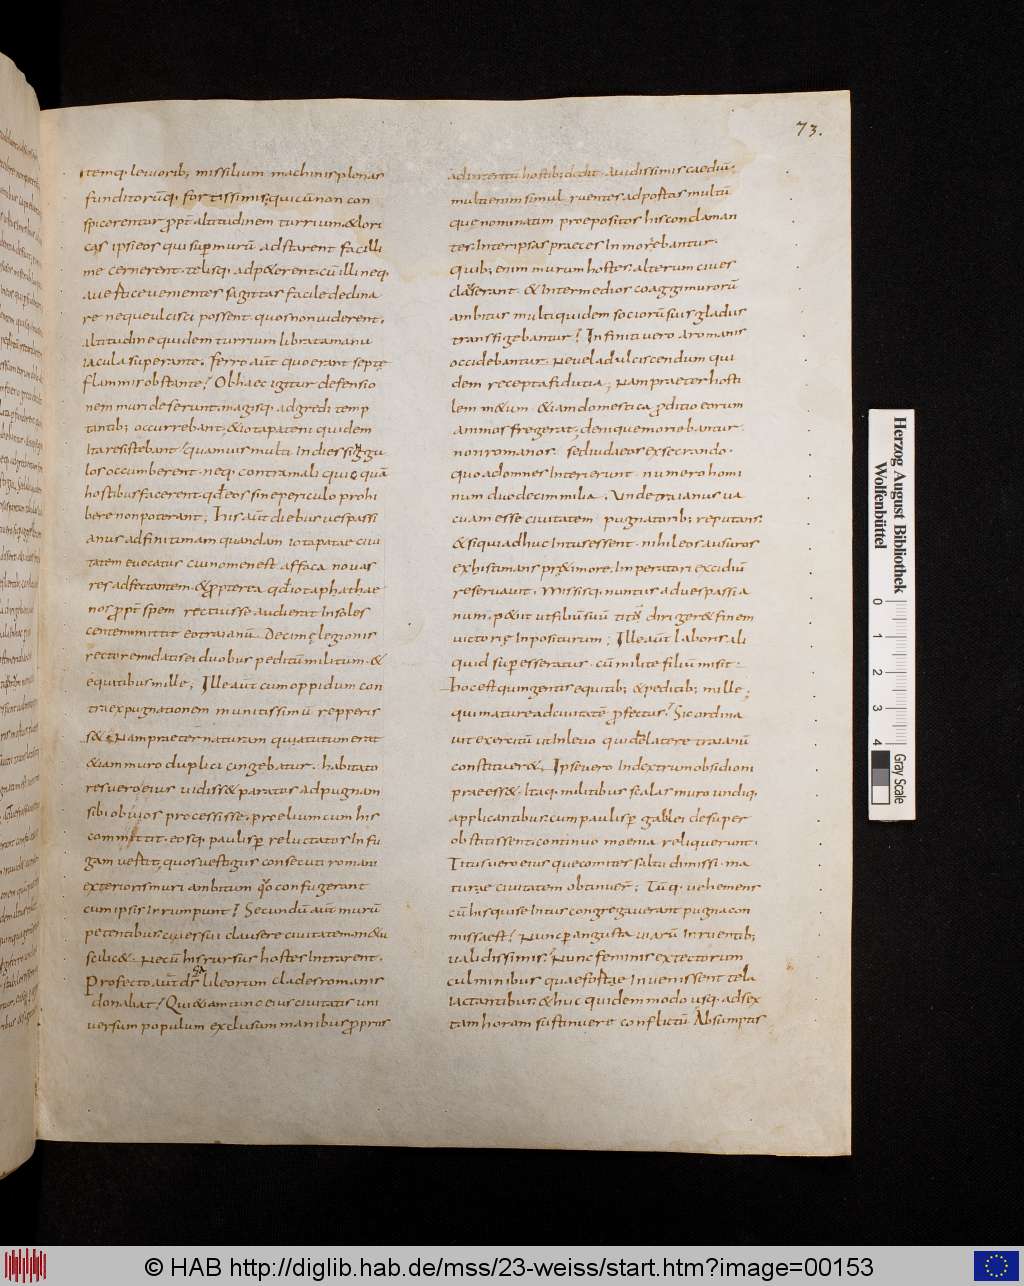 73.
temq; leuiorib; missilium machinis plenas
funditorūq; fortissimis; qui cū non con
spicerentur ꝓpt̄ altitudinem turrium & lori
cas ipsi eos qui sup murū adstarent facilli
me cernerent. telisq; adpeterent. cū illi neq;
aut e
re neque ulcisci possent quos non uiderent.
altitudine quidem turrium librata manu
iacula superante. ferro aūt quo erant septe
flammis obstante; Ob haec igitur defensio
nem muri deserunt. magisq; adgredi temp
tantib; occurrebant; & iotapateni quidem
ita resistebant; quamuis multi In dies singu
los occumberent. neq; contra mali quicquā
hostibus facerent qd eos sine periculo prohi
bere non poterant; His aūt diebus uespassi
anus ad finitimam quandam iotapatae ciui
tatem euocatus cui nomen est affaca nouas
res adfectantem. & ꝓpterea qd iotaphathae
nos ꝓpt̄ spem rectiuisse audierat Insoles
centem. mittit eo traianū. Decime legionis
rectorem. datis ei duobus peditū militum. &
equitibus mille; Ille aūt cum oppidum con
tra expugnationem munitissimū repperis
s&. Nam praeter naturam quia tutum erat
&iam muro duplici cingebatur. habitato
res uero eius uidiss& paratos ad pugnam
sibi obuios processisse. proelium cum his
committit. eosq; paulisp reluctatos In fu
gam uertit; quos uestigus consecuti romani
exterioris muri ambitum quo confugerant
cum ipsis Irrumpunt; Secundū aūt murū
petentibus ciues sui clausere ciuitatem. n&u
scilic&. Necū his rursus hostes Intrarent.
Profecto aūt ds galileorum clades romanis
donabat; Qui &iam tunc eius ciuitatis uni
uersum populum exclusum manibus ꝓprus
ad interitū hostib; dedit. auidissimis caediū;
multi enim simul ruentes ad portas multū
que nominatim praepositos his conclaman
tes. Inter ipsas praeces In morebantur.
quib; enim murum hostes. alterum ciues
clauserant. & Inter medios coaggi murorū
ambitus multi quidem sociorū suis gladus
transfigebantur; Infiniti uero a romanis
occidebantur. Ne uel ad ulciscendum qui
dem recepta fidutia; Nam praeter hosti
lem m&um. &iam domestica ꝓditio eorum
animos fregerat; denique moriebantur
non romanos. sed iudaeos exsecrando.
quo ad omnes Interierunt. numero homi
num duodecim milia; Unde traianus ua
cuam esse ciuitatem pugnatorib; reputans.
& si qui adhuc Intus essent. nihil eos ausuros
exhistimans prae timore. Imperatori excidiū
reseruauit. Missisq; nuntus ad uespassia
num. petiit ut filiū suū titus dirigeret finem
uictorie Inpositurum; Ille aūt laboris ali
quid sup esse ratus. cū milite filiū misit.
hoc est quingentis equitib; & peditib; mille;
qui mature ad ciuitatē ꝓfectus; Sic ordina
uit exercitū ut In leuo quidē latere traianū
constituer&. Ipse uero In dextrum obsidioni
praeess&. Itaq; militibus scalas muro undiq;
applicantibus. cum paulisp galilei desuper
obstitissent. continuo moenia reliquerunt.
Titus uero eiusque comites saltu dimissi. ma
turae ciuitatem obtinuer̄; Tūq; uehemens
cū his qui se Intus congregauerant pugna con
missa est; Nunc p angusta uiarū Irruentib;
ualidissimis; Nunc feminis ex tectorum
culminibus quae fortae Inuenissent tela
iactantibus. & huc quidem modo usq; ad sex
tam horam sustinuere conflictū Absumptis
Herzog August Bibliothek
Wolfenbüttel
0 1 2 3 4
Gray Scale
© HAB http://diglib.hab.de/mss/23-weiss/start.htm?image=00153